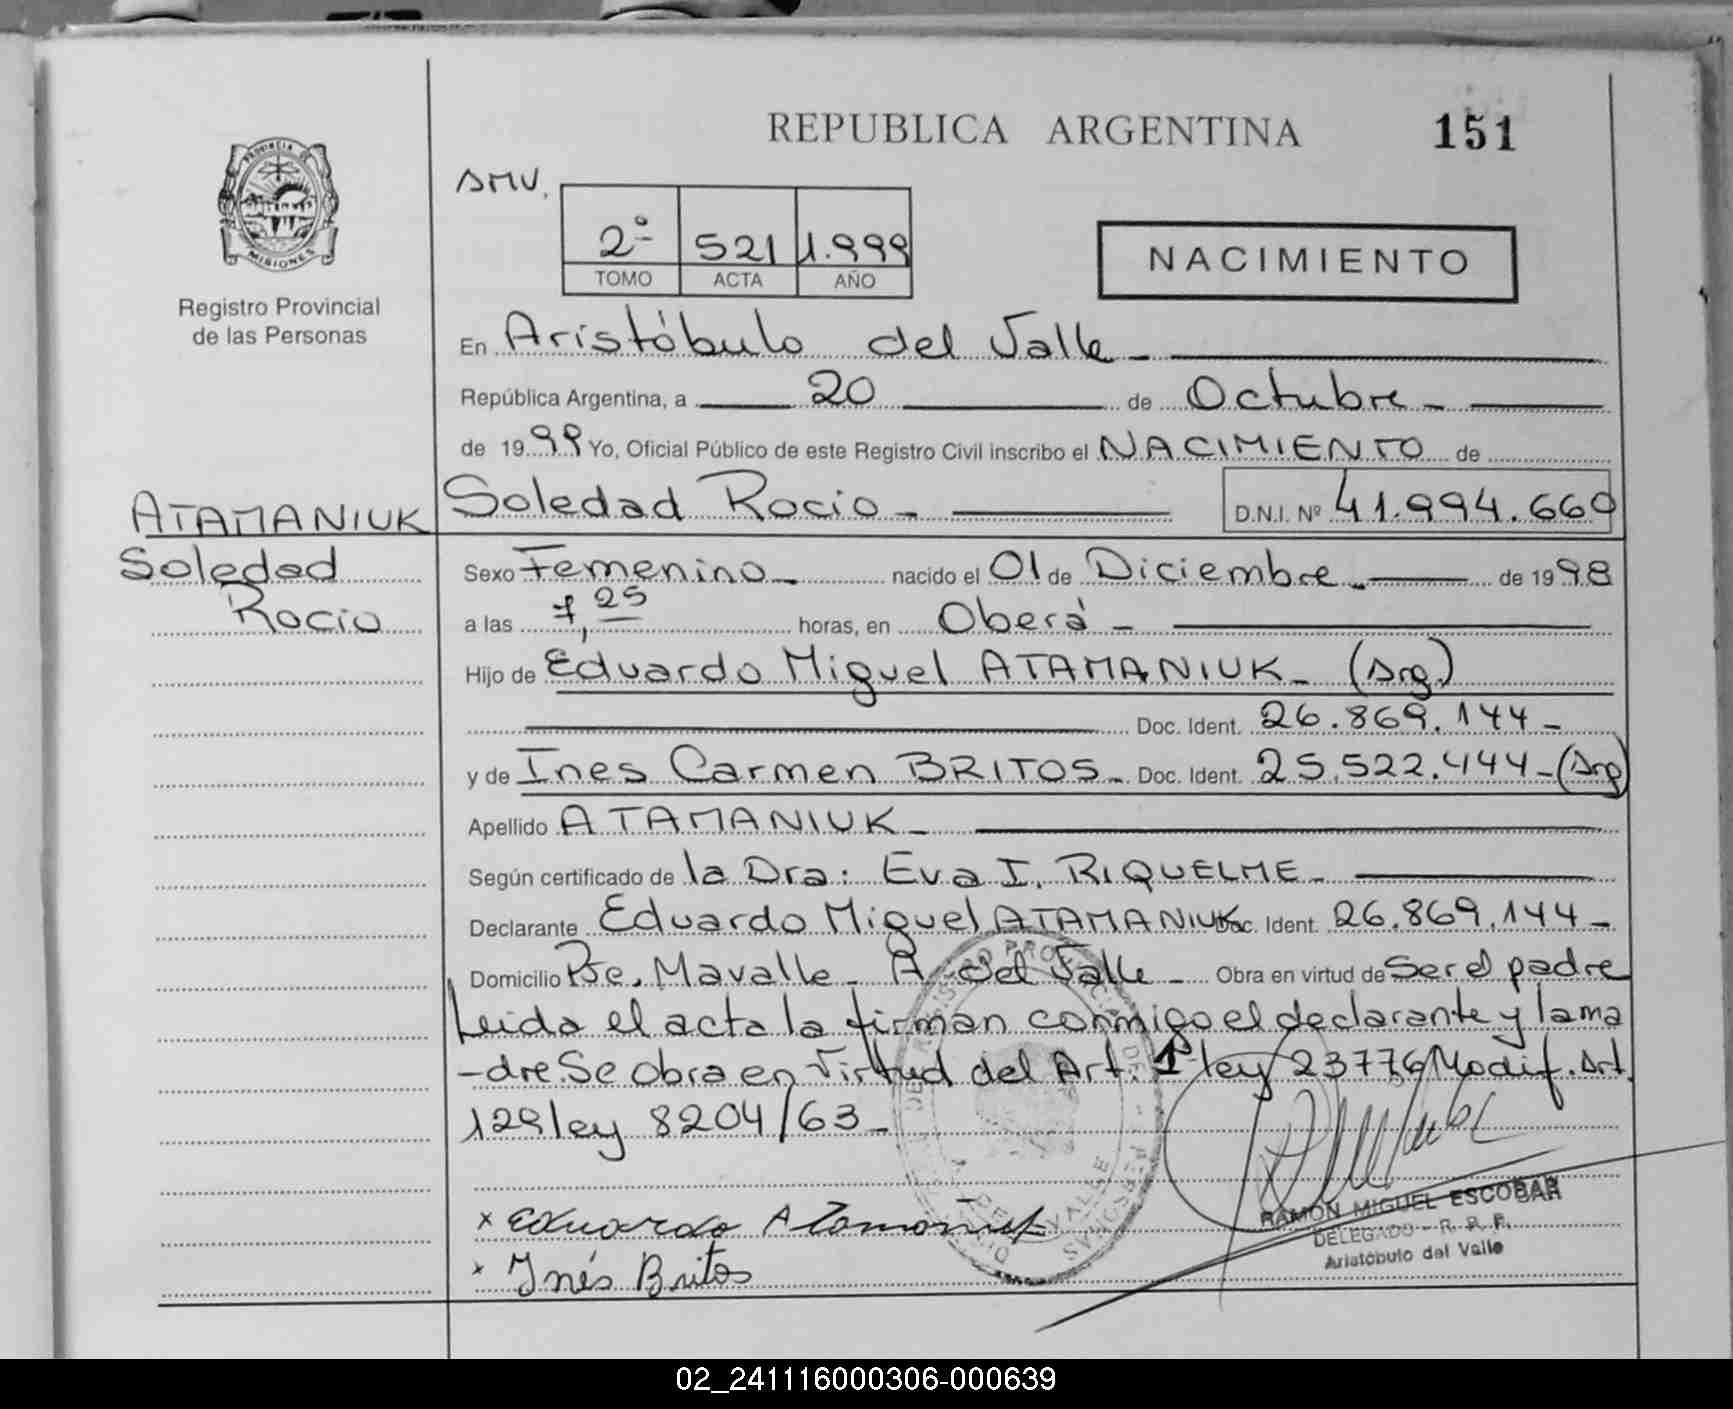 REPUBLICA ARGENTINA 151
2º 521 1.999
TOMO ACTA AÑO
NACIMIENTO
MISIONES
Registro Provincial
de las Personas
En Aristóbulo del Valle -
República Argentina, a 20 de Octubre -
de 1999 Yo, Oficial Público de este Registro Civil inscribo el NACIMIENTO de
ATAMANIUK
Soledad
Rocio
Soledad Rocio - D.N.I. Nº 41.994.660
Sexo Femenino - nacido el 01 de Diciembre - de 1998
a las 7,25 horas, en Oberá -
Hijo de Eduardo Miguel ATAMANIUK - (Arg.)
Doc. Ident. 26.869.144 -
y de Ines Carmen BRITOS - Doc. Ident. 25.522.444 - (Arg)
Apellido ATAMANIUK -
Según certificado de la Dra: Eva I. RIQUELME -
Declarante Eduardo Miguel ATAMANIUK Doc. Ident. 26.869.144 -
Domicilio Pje. Mavalle - A. del Valle - Obra en virtud de Ser el padre
Leida el acta la firman conmigo el declarante y la ma
-dre. Se obra en Virtud del Art. 1º ley 23776 Modif. Art.
129 ley 8204/63 -
x Eduardo Atamaniuk
x Inés Britos
RAMON MIGUEL ESCOBAR
DELEGADO - R. P. P.
Aristóbulo del Valle
02_241116000306-000639